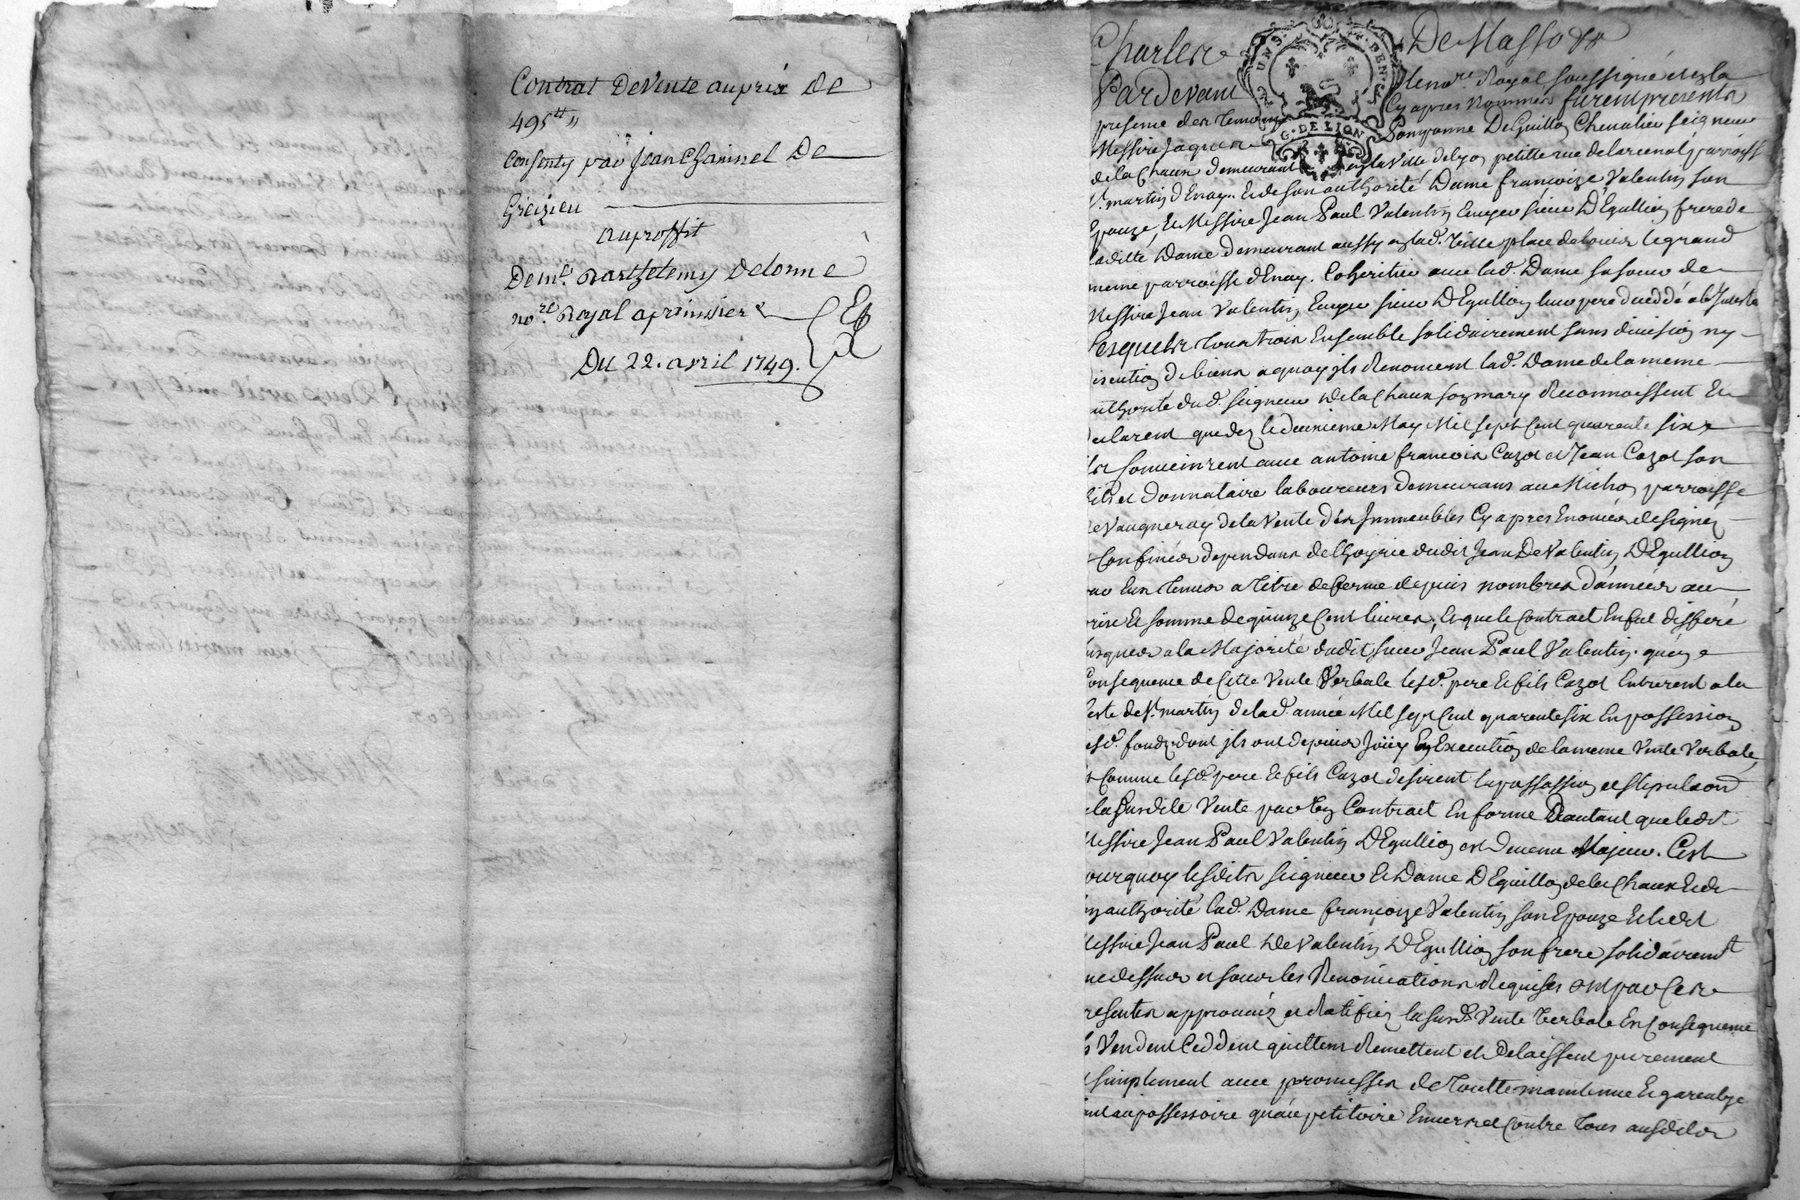 Contrat De Vente au prix De
495 ""
Consenty par Jean Chainnel De
Greizieu
au proffit
De mr. Barthelemy Delorme
no.re Royal apreinssieu
Du 22. avril 1749.
Charles De Masso
UN S. DEN.
G. DE LION
Pardevant le no.re Royal soussigné et en la
presence des temoins Cy apres Nommes furent presents
Messire Jaques Pomponne De Guillon Chevalier seigneur
de la Chaux demeurant en la Ville de Lyon petitte rue de larcenat parroisse
St. martin d'Enay. et de son authorité Dame francoize Valentin son
Epouze, Et Messire Jean Paul Valentin Ecuyer sieur D'Eguillion frere de
ladite Dame demeurant aussy en lad. Ville place de Louis le grand
meme parroisse d'Enay. Coheritier avec lad. Dame sa soeur de
Messire Jean Valentin Ecuyer sieur D'Eguillion leur pere decedé ab Intestat
Lesquels tous trois Ensemble solidairement sans division ny
discution de biens a quoy ils Renoncent lad. Dame de la meme
authorité dud. seigneur De la Chaux son mary Reconnoissent Et
declarent que des le deuxieme May Mil sept Cent quarante six
ils Convinrent avec antoine francois Cazot et Jean Cazot son
fils et donnataire laboureurs demeurans au Michon parroisse
de Vaugneray de la Vente des Immeubles Cy apres Enoncés designés
Confinés dependans de l'hoyrie dudit Jean De Valentin D'Eguillion
a titre de ferme depuis nombres d'années au
prix Et somme de quinze Cent livres, Et que le Contract En fut differé
jusques a la Majorité dudit sieur Jean Paul Valentin. qu'en
Consequence de Cette Vente Verbale lesd. pere Et fils Cazot Entrerent a la
feste de St. martin de lad. année Mil sept Cent quarante six En possession
desd. fonds dont ils ont depuis Joüy En Execution de la meme Vente Verbale,
Et Comme lesd. pere Et fils Cazot desirent la passassion et stipulaon
de la susdite Vente par Un Contract En forme D'autant que ledit
Messire Jean Paul Valentin D'Eguillion est Devenu Majeur. C'est
pourquoy lesdits seigneur Et Dame D'Eguillon de la Chaux Et de
son authorité lad. Dame françoize Valentin son Epouze Et ledit
Messire Jean Paul De Valentin D'Eguillion son frere solidairemt
que dessus et sous les Renonciations Requises ont par Ces
presentes approuvés et Ratifiés la susd. Vente Verbale En Consequence
ils Vendent Ceddent quittent Remettent et Delaissent purement
et simplement avec promesses de toutte maintenue Et garentye
tant au possessoire qu'au petitoire Envers et Contre tous ausdits